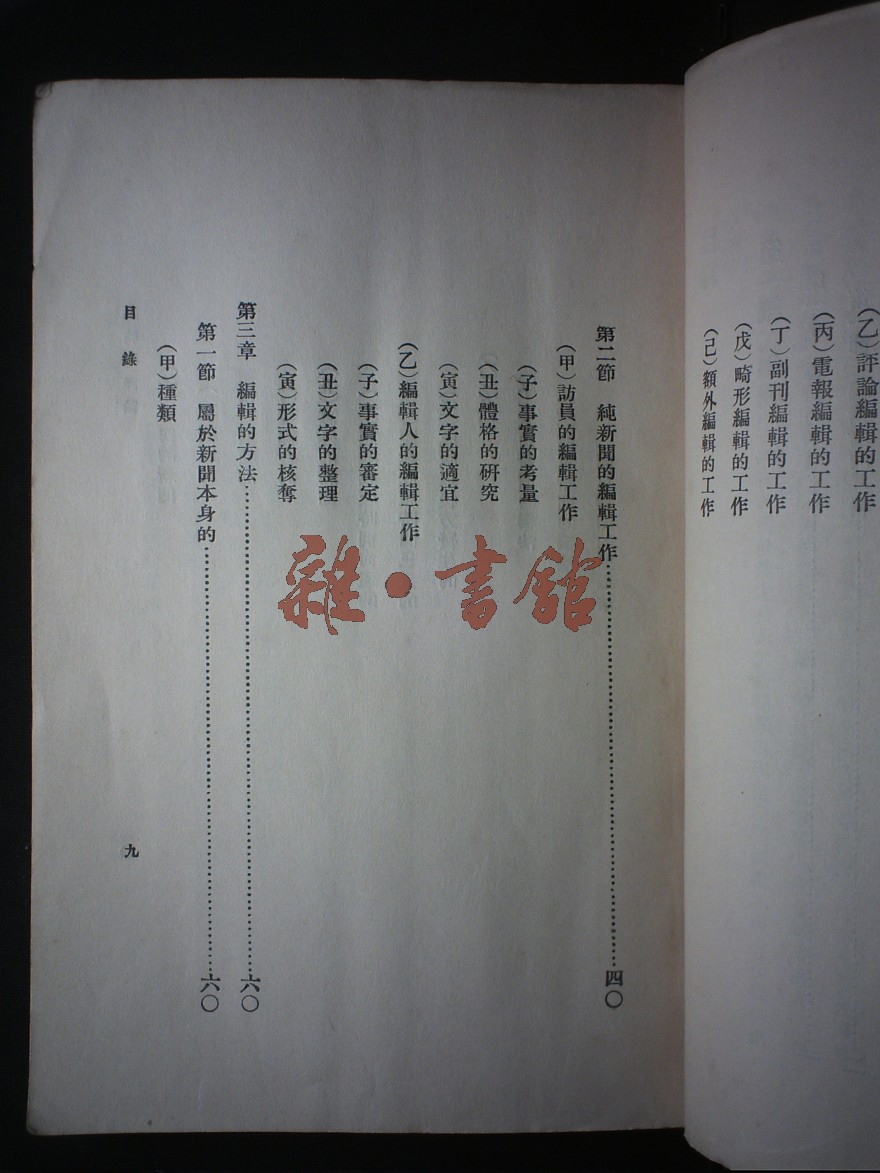 （乙）評論編輯的工作
（丙）電報編輯的工作
（丁）副刊編輯的工作
（戊）畸形編輯的工作
（己）額外編輯的工作
第二節　純新聞的編輯工作……四〇
（甲）訪員的編輯工作
（子）事實的考量
（丑）體格的研究
（寅）文字的適宜
（乙）編輯人的編輯工作
（子）事實的審定
（丑）文字的整理
（寅）形式的核奪
第三章　編輯的方法……六〇
第一節　屬於新聞本身的……六〇
（甲）種類
目錄
九
雜·書館